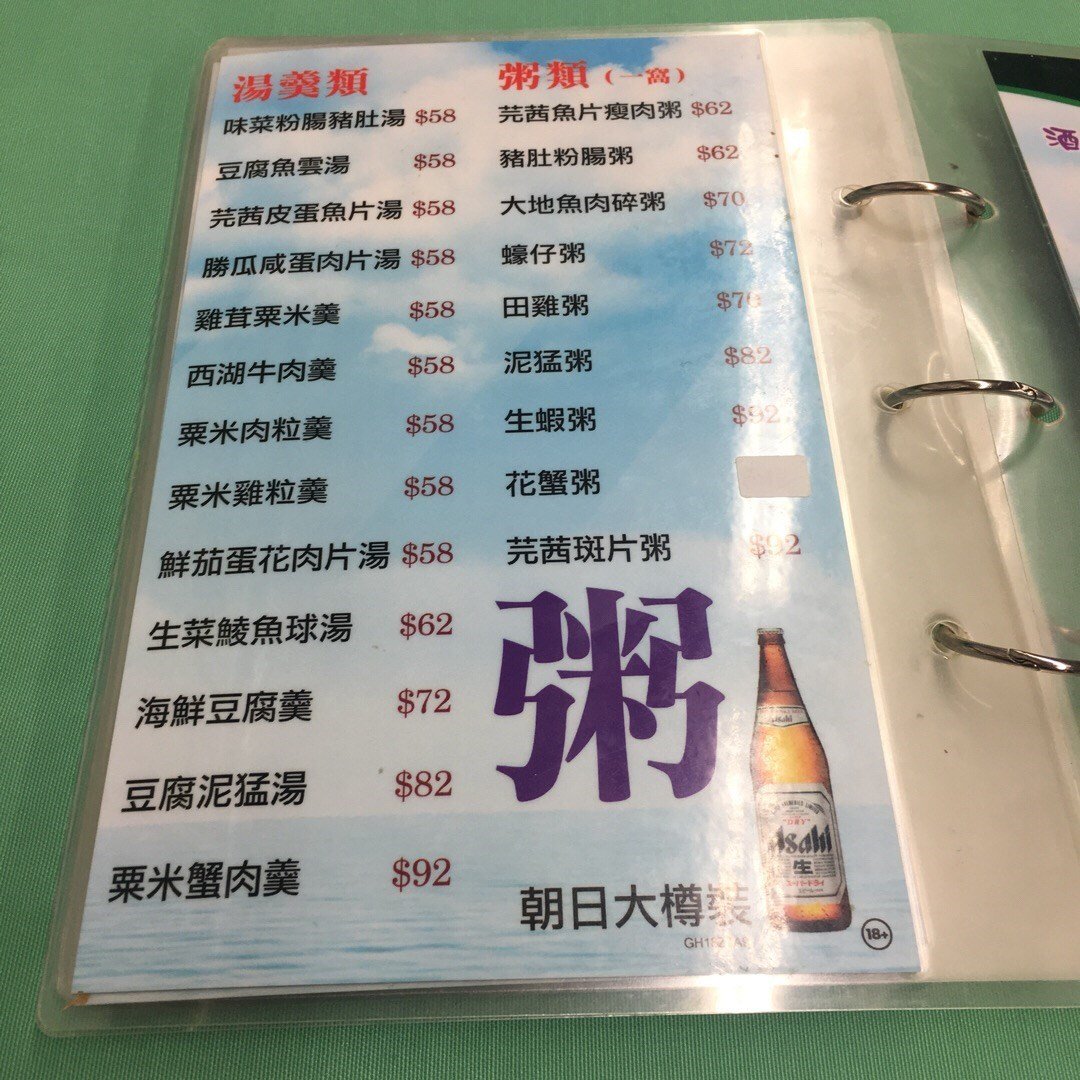 湯羹類
味菜粉腸豬肚湯 $58
豆腐魚雲湯 $58
芫茜皮蛋魚片湯 $58
勝瓜咸蛋肉片湯 $58
雞茸粟米羹 $58
西湖牛肉羹 $58
粟米肉粒羹 $58
粟米雞粒羹 $58
鮮茄蛋花肉片湯 $58
生菜鯪魚球湯 $62
海鮮豆腐羹 $72
豆腐泥猛湯 $82
粟米蟹肉羹 $92
粥類（一窩）
芫茜魚片瘦肉粥 $62
豬肚粉腸粥 $62
大地魚肉碎粥 $70
蠔仔粥 $72
田雞粥
泥猛粥 $82
生蝦粥 $92
花蟹粥
芫茜斑片粥 $92
粥
Asahi
"DRY"
Asahi
生
スーパードライ
朝日大樽裝
18+
酒